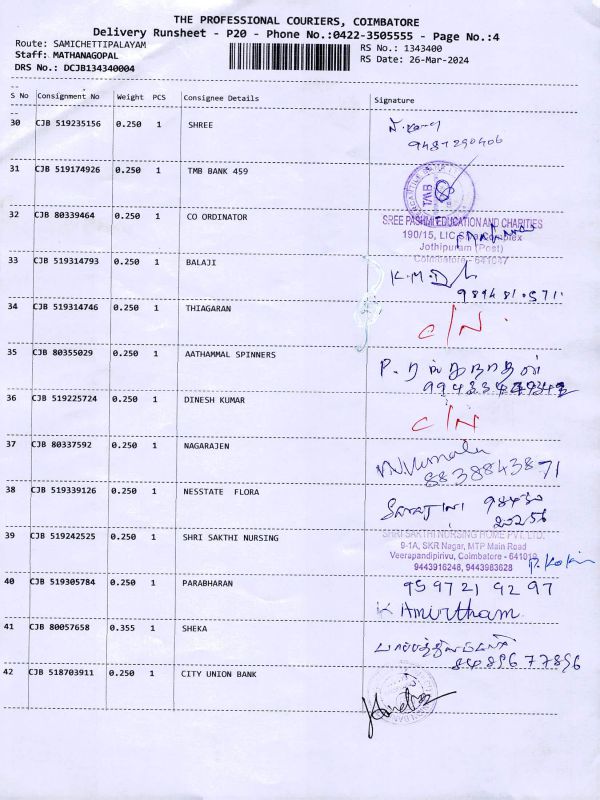 THE PROFESSIONAL COURIERS, COIMBATORE
Delivery Runsheet - P20 - Phone No.:0422-3505555 - Page No.:4
Route: SAMICHETTIPALAYAM
RS No.: 1343400
Staff: MATHANAGOPAL
RS Date: 26-Mar-2024
DRS No.: DCJB134340004
S No Consignment No Weight PCS Consignee Details Signature
30 CJB 519235156 0.250 1 SHREE
31 CJB 519174926 0.250 1 TMB BANK 459
TMB
32 CJB 80339464 0.250 1 CO ORDINATOR
SREE PASHMI EDUCATION AND CHARITIES
190/15, LIC Complex
Jothipuram (Post)
Coimbatore - 641047
33 CJB 519314793 0.250 1 BALAJI
K.M.D
34 CJB 519314746 0.250 1 THIAGARAN
C/N.
35 CJB 80355029 0.250 1 AATHAMMAL SPINNERS
36 CJB 519225724 0.250 1 DINESH KUMAR
C/N
37 CJB 80337592 0.250 1 NAGARAJEN
8838843871
38 CJB 519339126 0.250 1 NESSTATE FLORA
98430
20256
39 CJB 519242525 1 0.250 SHRI SAKTHI NURSING
SHRI SAKTHI NURSING HOME PVT. LTD.
9-1A, SKR Nagar, MTP Main Road
Veerapandipirivu, Coimbatore - 641019
9443916248, 9443983628
40 CJB 519305784 0.250 1 PARABHARAN
959721 9297
K Amirtham
41 CJB 80057658 0.355 1 SHEKA
8489677896
42 CJB 518703911 0.250 1 CITY UNION BANK